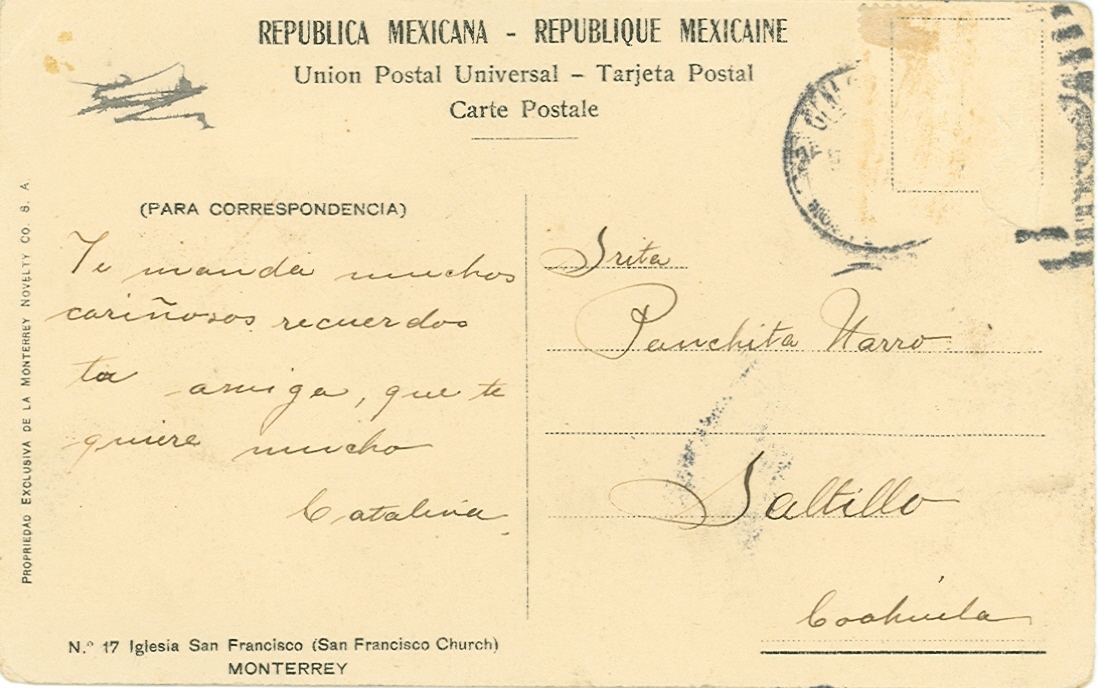 REPUBLICA MEXICANA - REPUBLIQUE MEXICAINE
Union Postal Universal - Tarjeta Postal
Carte Postale
(PARA CORRESPONDENCIA)
Te manda muchos
cariñosos recuerdos
tu amiga, que te
quiere mucho
Catalina
Srita
Panchita Narro
Saltillo
Coahuila
PROPRIEDAD EXCLUSIVA DE LA MONTERREY NOVELTY CO. S. A.
N.º 17 Iglesia San Francisco (San Francisco Church)
MONTERREY